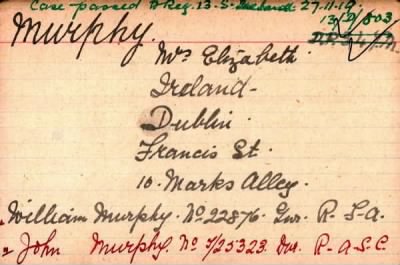 Case passed to Reg. 13. S. Ireland 27.11.19.
13/D/503
Murphy.
Mrs Elizabeth
Ireland-
Dublin.
Francis St.
10. Marks Alley.
William Murphy. No 22876. Gnr. R-G-A.
John Murphy. No T/25323. Dvr. R-A-S-C.